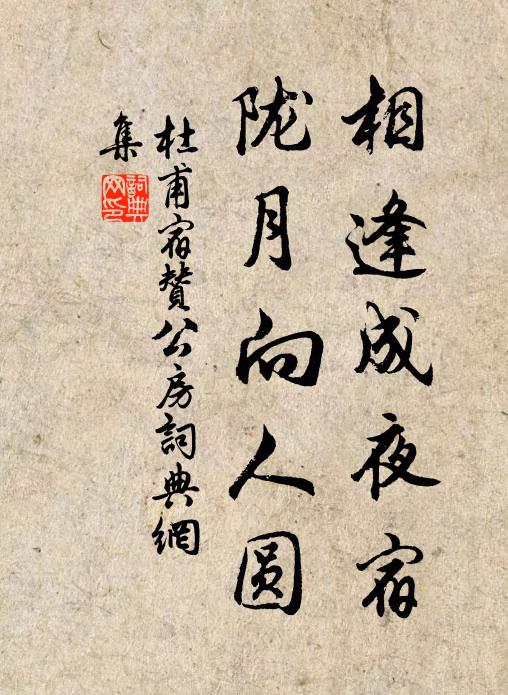 相逢成夜宿
陇月向人圆
杜甫宿赞公房詞典網
集
詞典
网印